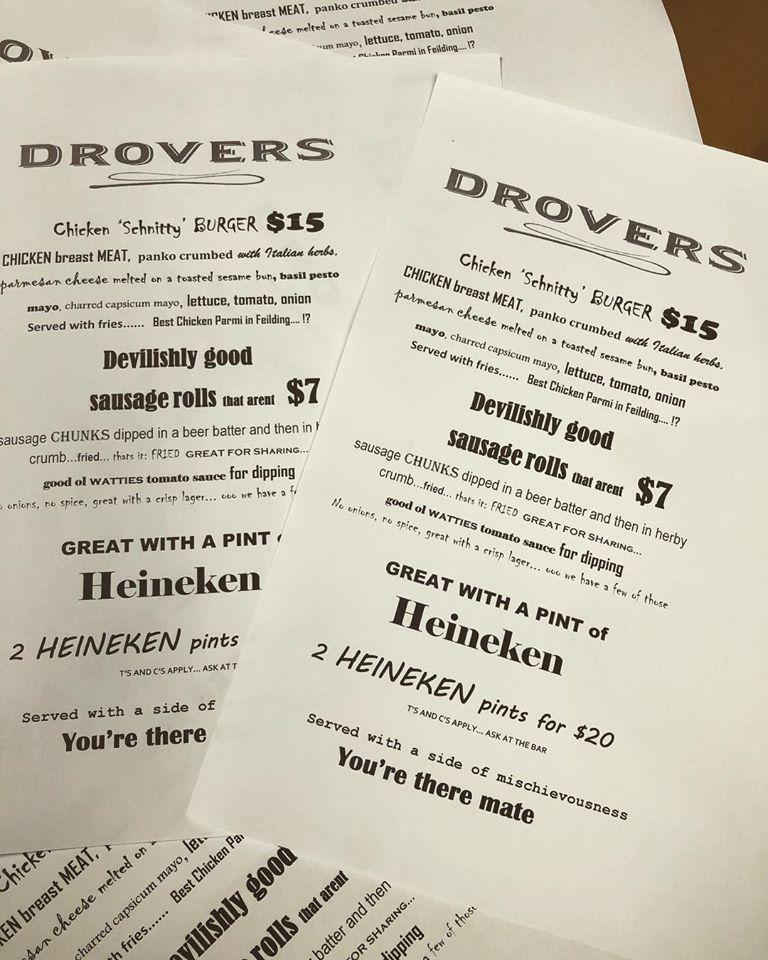 KEN breast MEAT, panko crumbed
cheese melted on a toasted sesame bun, basil pesto
um mayo, lettuce, tomato, onion
Chicken Parmi in Feilding.... !?
DROVERS
Chicken 'Schnitty' BURGER $15
CHICKEN breast MEAT, panko crumbed with Italian herbs,
parmesan cheese melted on a toasted sesame bun, basil pesto
mayo, charred capsicum mayo, lettuce, tomato, onion
Served with fries...... Best Chicken Parmi in Feilding.... !?
Devilishly good
sausage rolls that arent $7
sausage CHUNKS dipped in a beer batter and then in h
crumb...fried... thats it: FRIED GREAT FOR SHARING...
good ol WATTIES tomato sauce for dipping
onions, no spice, great with a crisp lager... ooo we have a f
GREAT WITH A PINT
Heineken
2 HEINEKEN pints
T'S AND C'S APPLY... ASK AT T
Served with a side of
You're there
DROVERS
Chicken 'Schnitty' BURGER $15
CHICKEN breast MEAT, panko crumbed with Italian herbs,
parmesan cheese melted on a toasted sesame bun, basil pesto
mayo, charred capsicum mayo, lettuce, tomato, onion
Served with fries...... Best Chicken Parmi in Feilding.... !?
Devilishly good
sausage rolls that arent $7
sausage CHUNKS dipped in a beer batter and then in herby
crumb...fried... thats it: FRIED GREAT FOR SHARING...
good ol WATTIES tomato sauce for dipping
No onions, no spice, great with a crisp lager... ooo we have a few of those
GREAT WITH A PINT of
Heineken
2 HEINEKEN pints for $20
T'S AND C'S APPLY... ASK AT THE BAR
Served with a side of mischievousness
You're there mate
Chicke
KEN breast MEAT,
san cheese melted on
charred capsicum mayo, let
h fries...... Best Chicken Pa
vilishly good
rolls that arent
batter and then
FOR SHARING...
dipping
a few of those